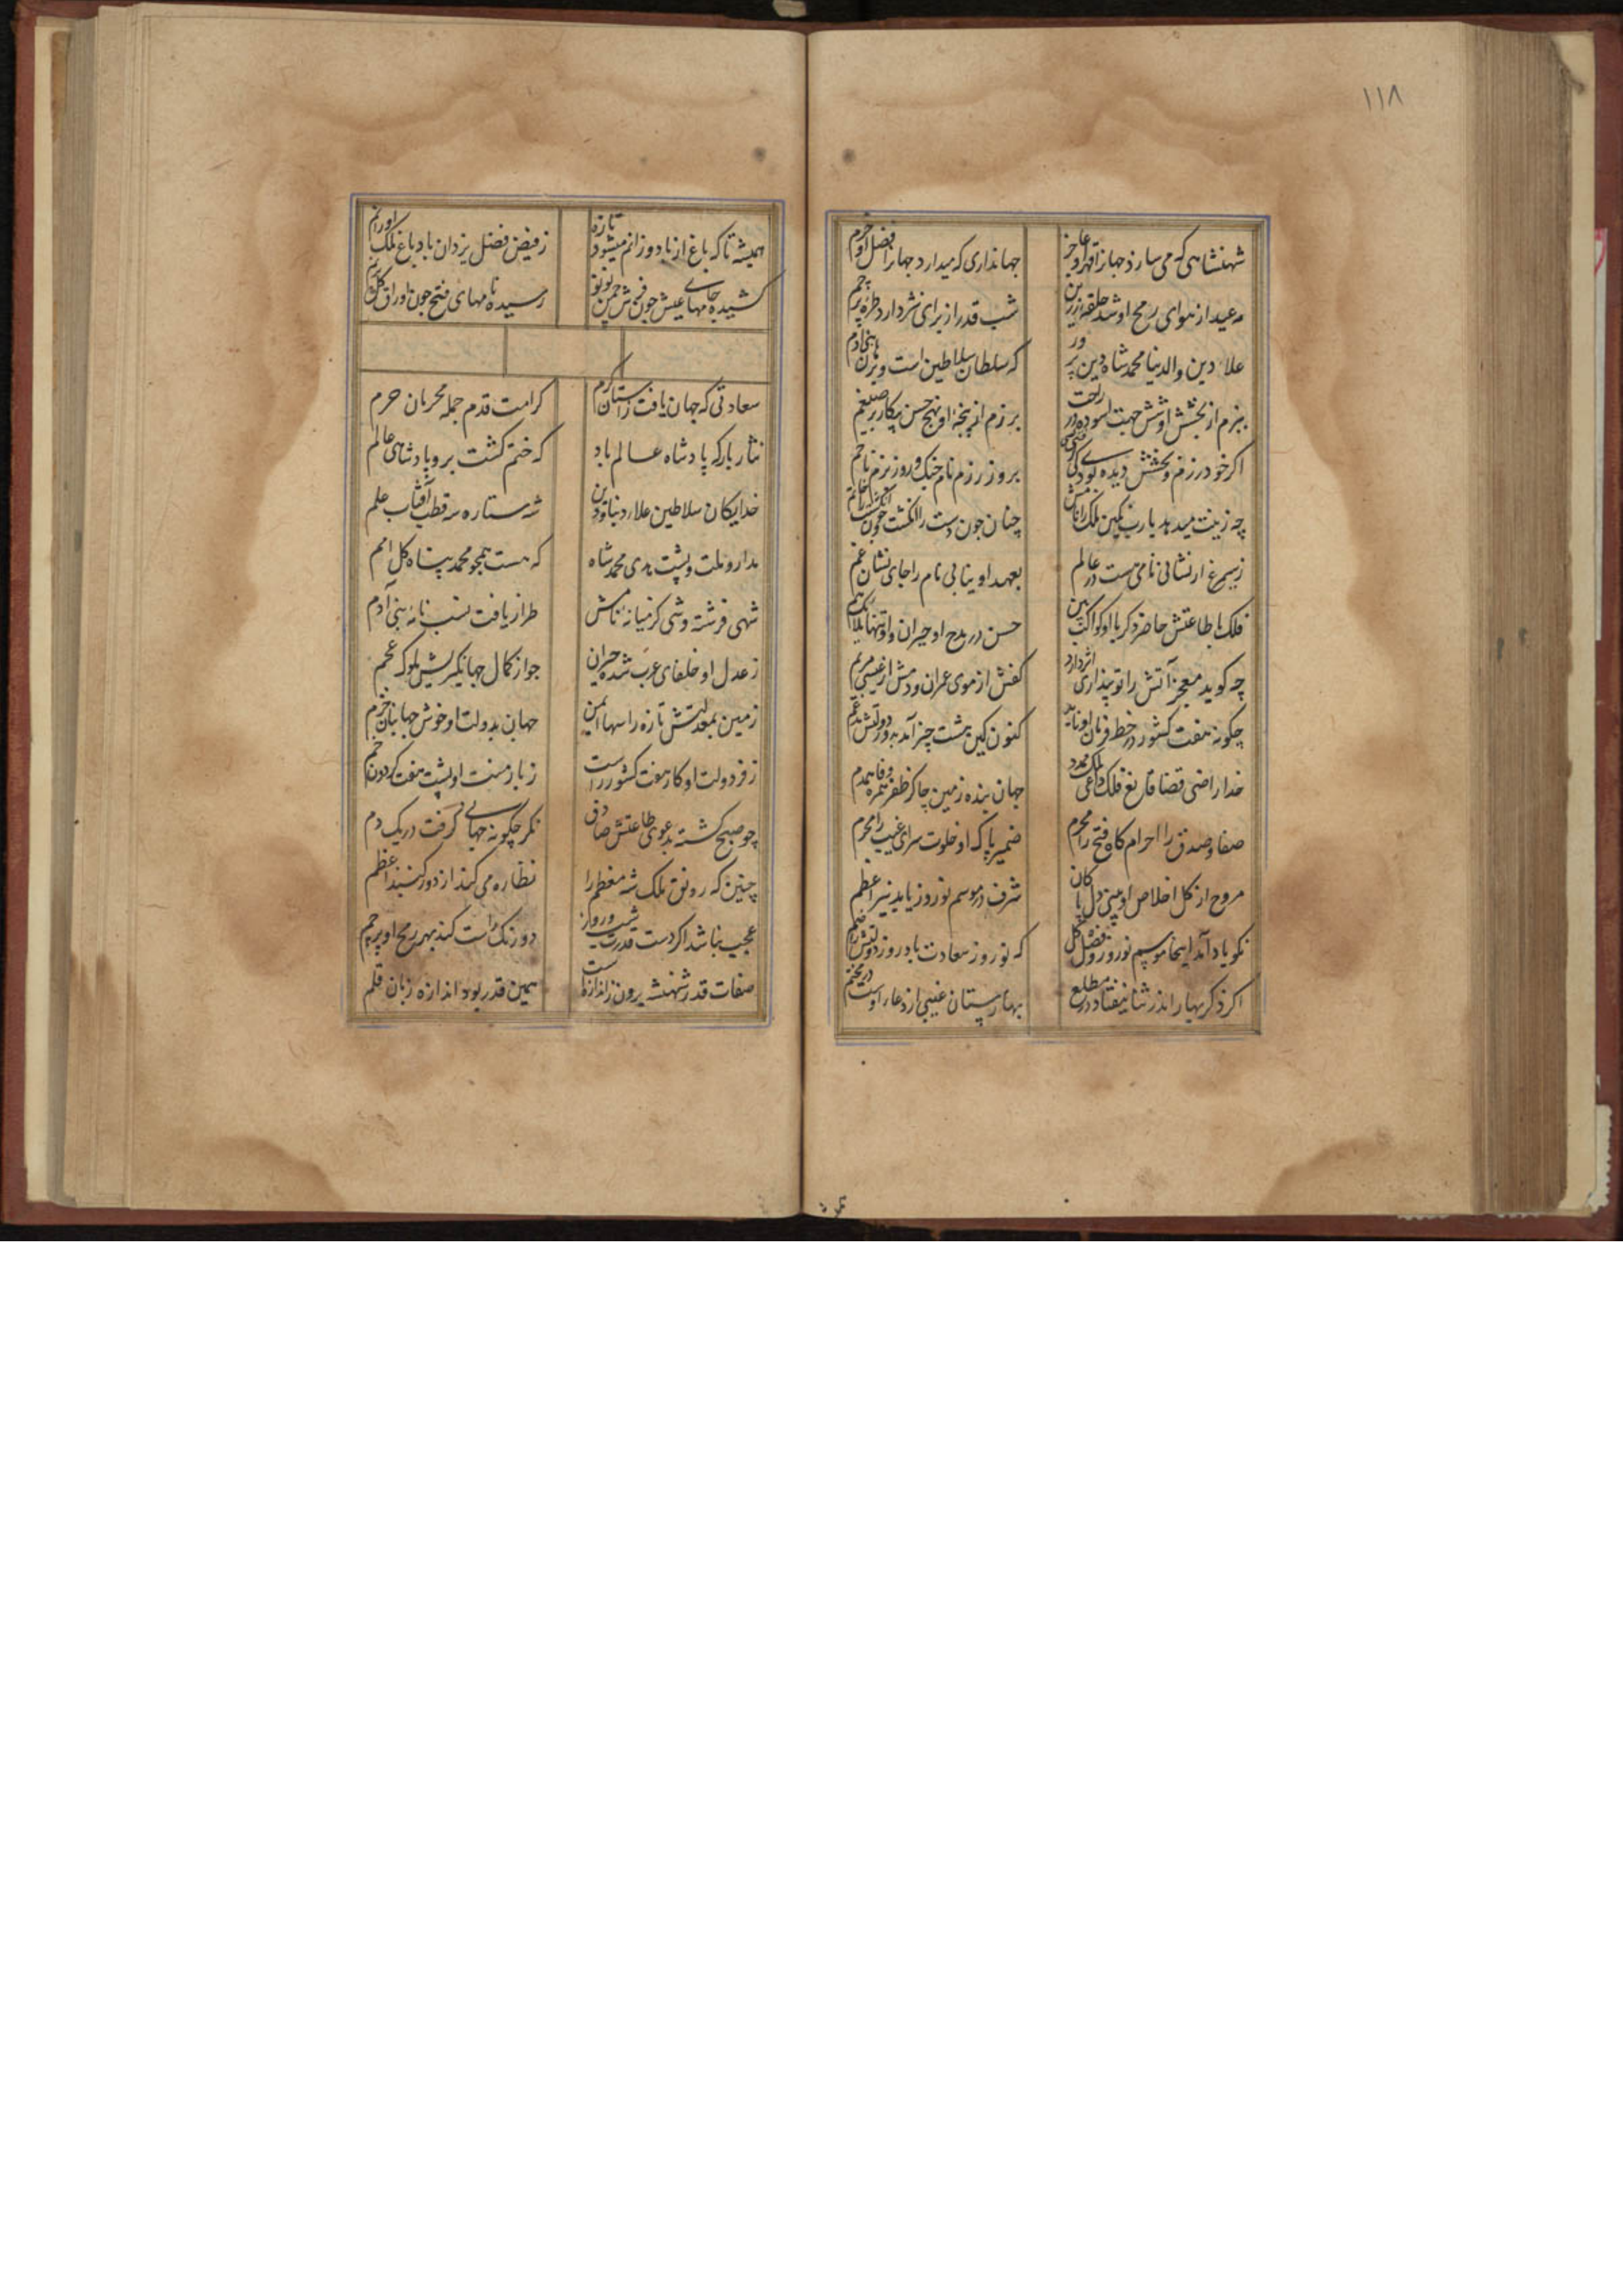 ١١٨
شهنشاهی که می سازد جهانرا قهر او عاجز
جهانداری که میدارد جهانرا فضل او خرم
مه عید از هوای رمح او شد حلقه زرین
شب قدر از برای نثر دارد طره پرچم
علاء دین والدنیا محمد شاه دین پرور
که سلطان سلاطین است و بنی آدم
ببزم از بخشش او شش جهت آسوده در راحت
برزم از پنجه او پنج حس پیکار بر ضیغم
اگر خود رزم و بخشش دیده بودی کی
بروز رزم نام جنک و روز بزم نام جم
چه زینت میدهد یارب نکین ملک را نامش
چنان چون دست را انکشت و چون انکشت را خاتم
ز سیمرغ ار نشانی نامی ست در عالم
بعهد او نیابی نام را جای نشان غم
فلک با طاعتش حاضر دکر با او کواکب بین
حسن در مدح او حیران و او تنها
چه کوید معجز آتش را تو پنداری اثر دارد
کفش از موی عمران و دمش از عیسی مریم
چکونه هفت کشور در خط فرمان او ناید
کنون کین هشت چیز آمد به دور دولتش مدغم
خدا راضی قضا قانع فلک داعی ملک
جهان بنده زمین چاکر ظفر همره وفا همدم
صفا و صدق را احرام کاه فتح را محرم
ضمیر پاک او خلوت سرای غیب را محرم
مروح از کل اخلاص او بینی دل پاکان
شرف در موسم نوروز یابد نیر اعظم
نکو یاد آمد اینجا موسم نوروز و فضل کل
که نوروز سعادت باد روز دولتش را ضم
اکر ذکر بهار اندر ثنا نیفتاد در مطلع
بهارستان غیبی از دعاء اوست در مختم
همیشه تا که باغ از باد نوروز انم میشود تازه
ز فیض فضل یزدان باد باغ ملک او را نم
کشیده جامهای عیش چون فرش چمن نو نو
رسیده نامهای فتح چون اوراق کل
سعادتی که جهان یافت ز آستان کرم
کرامت قدم جمله محرمان حرم
نثار بارکه پادشاه عالم باد
که ختم کشت برو پادشاهی عالم
خدایکان سلاطین علاء دنیا و دین
شه ستاره سه قطب آفتاب علم
مدار و ملت و پشت هدی محمد شاه
که هست همچو محمد پناه کل امم
شهی فرشته وشی کز میانه نامش
طراز یافت نسب نامه بنی آدم
ز عدل او خلفای عرب شده حیران
جواز کمال جهانکیریش ملوک عجم
زمین بمعدلتش تازه راسها ایمن
جهان بدولت او خوش جهانیان خرم
ز فر دولت او کار هفت کشور راست
ز بار منت او پشت هفت کردون خم
چو صبح کشته بدعوی طاعتش صادق
نکر چکونه جهانی کرفت در یک دم
چنین که رونق ملک شه معظم را
نظاره می کند از دور کنبد اعظم
عجب نباشد اکر دست قدرت شب و روز
دو رنک راست کند بهر رمح او پرچم
صفات قدر شهنشه برون ز اندازه است
همین قدر بود اندازه زبان قلم